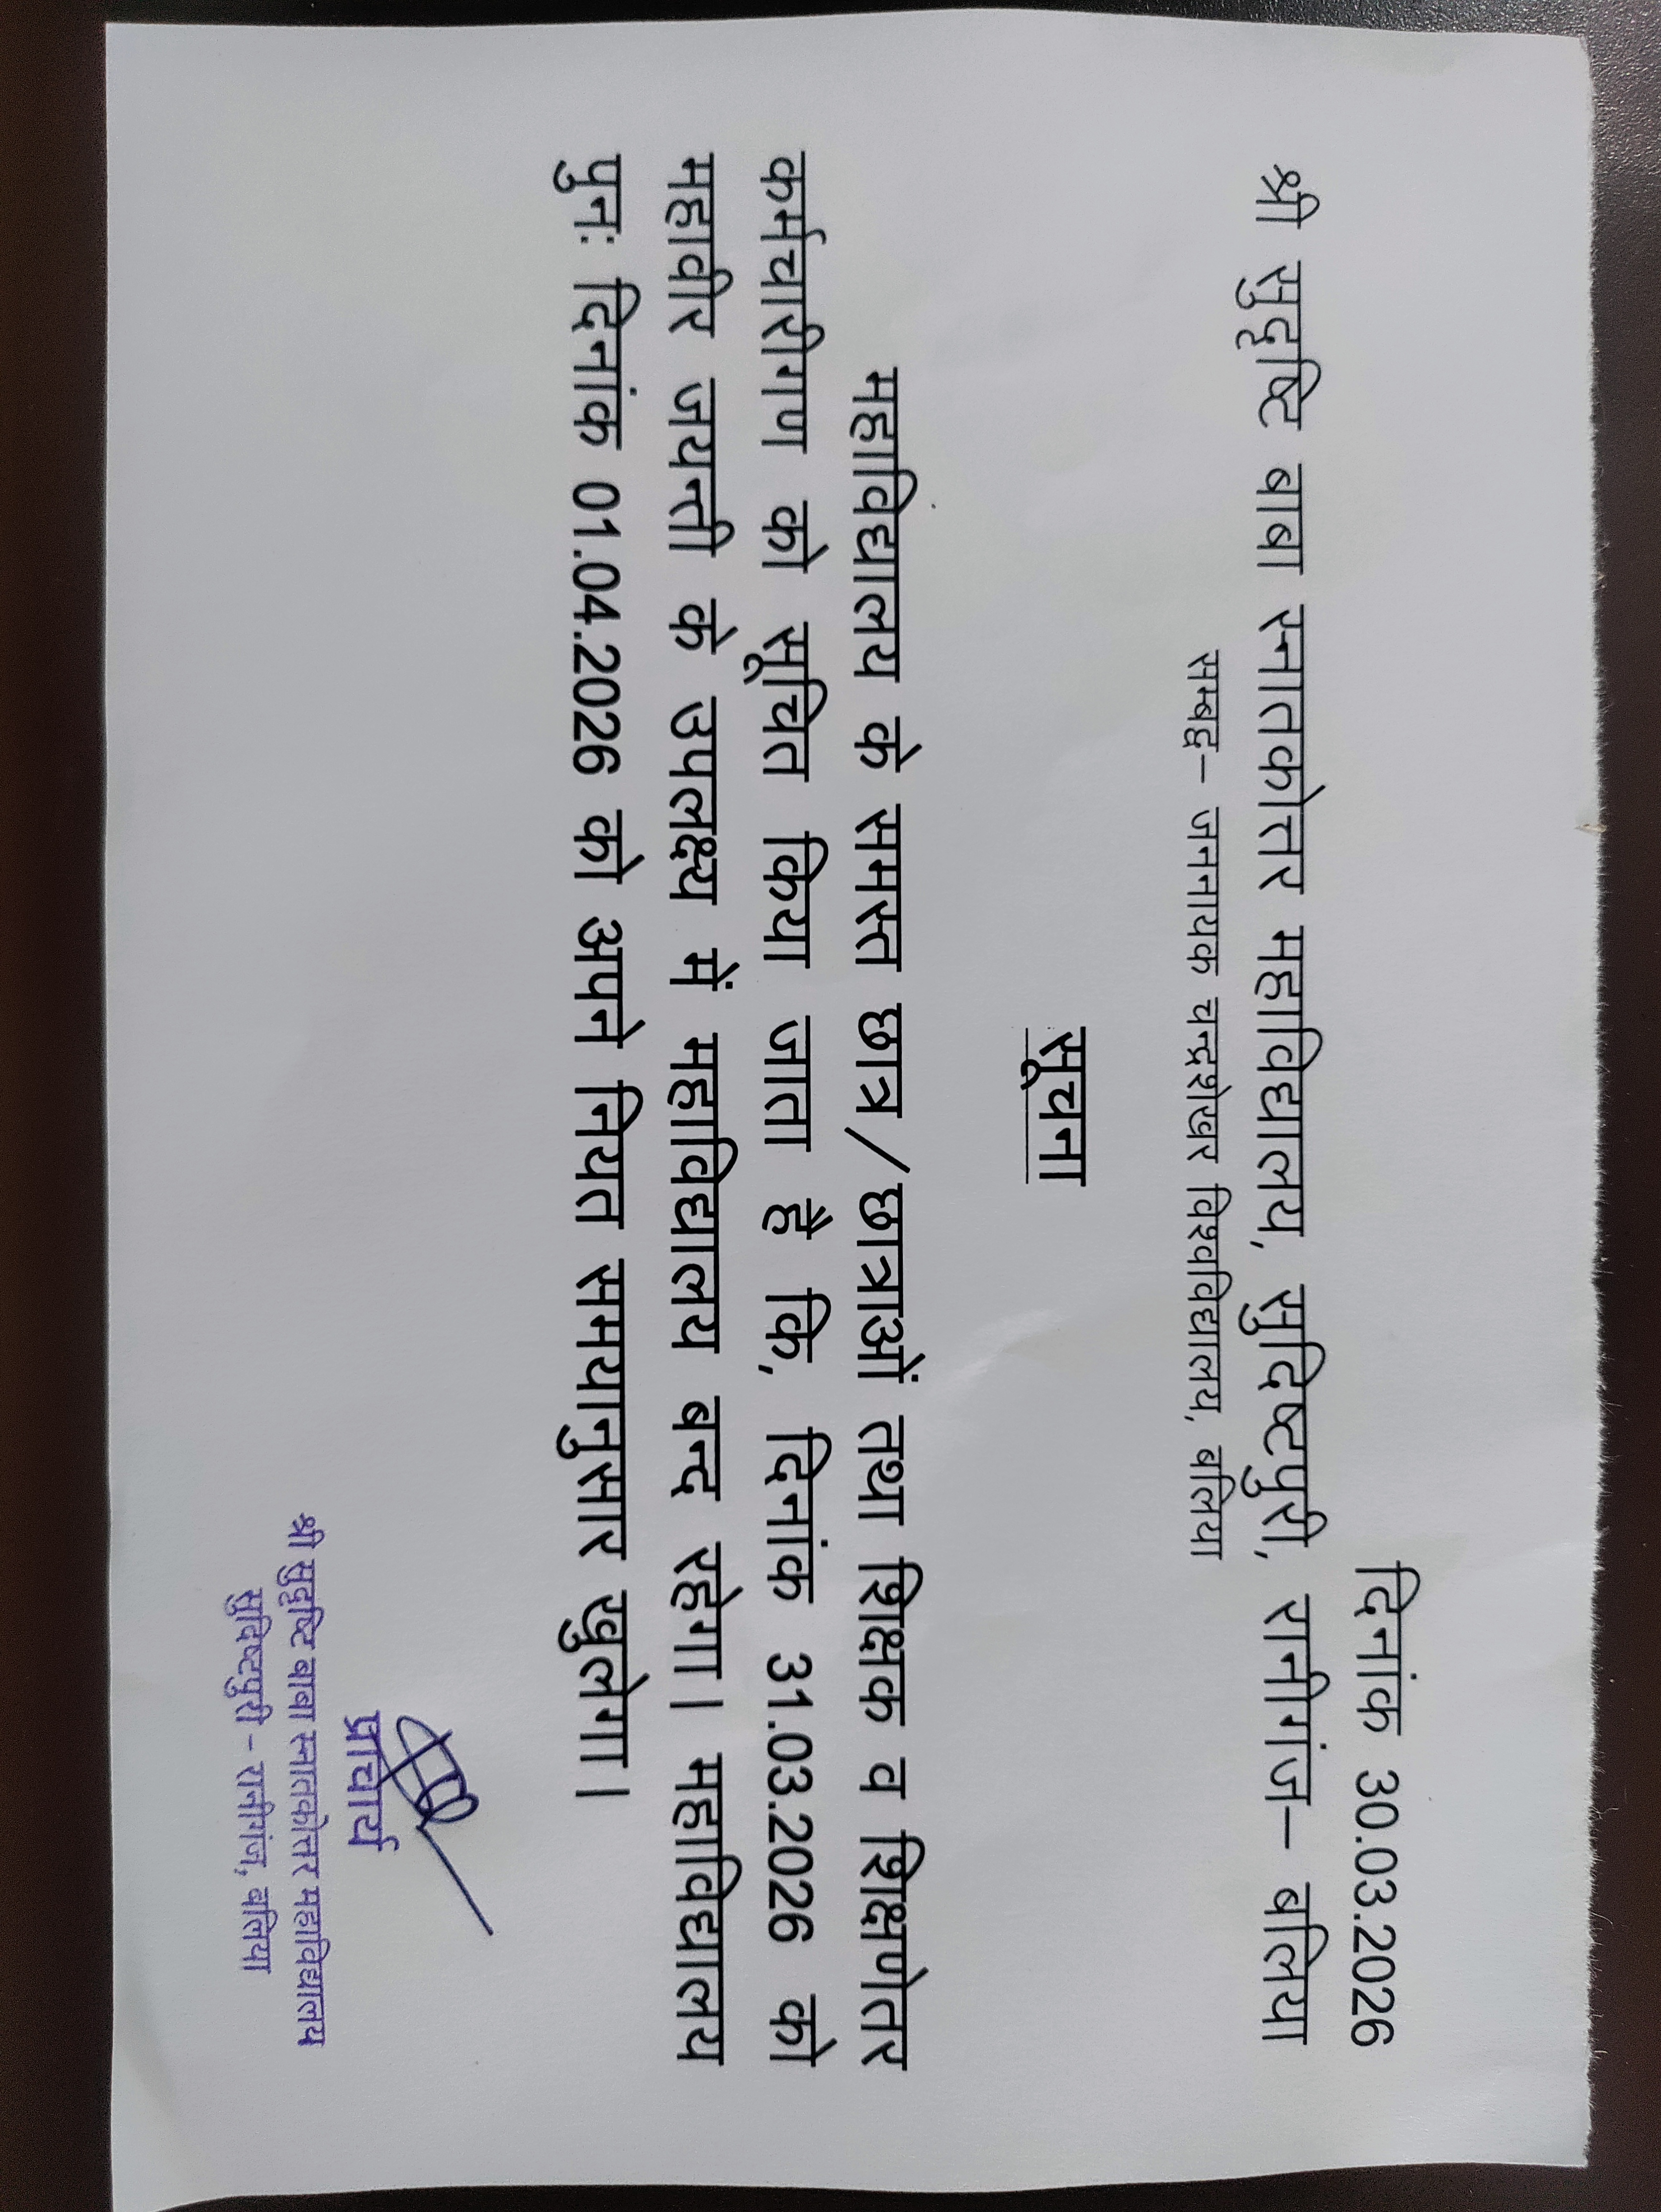 दिनांक 30.03.2026
श्री सुदृष्टि बाबा स्नातकोत्तर महाविद्यालय, सुदिष्टपुरी, रानीगंज– बलिया
सम्बद्ध– जननायक चन्द्रशेखर विश्वविद्यालय, बलिया
सूचना
महाविद्यालय के समस्त छात्र/छात्राओं तथा शिक्षक व शिक्षणेतर
कर्मचारीगण को सूचित किया जाता है कि, दिनांक 31.03.2026 को
महावीर जयन्ती के उपलक्ष्य में महाविद्यालय बन्द रहेगा। महाविद्यालय
पुनः दिनांक 01.04.2026 को अपने नियत समयानुसार खुलेगा।
प्राचार्य
श्री सुदृष्टि बाबा स्नातकोत्तर महाविद्यालय
सुदिष्टपुरी - रानीगंज, बलिया